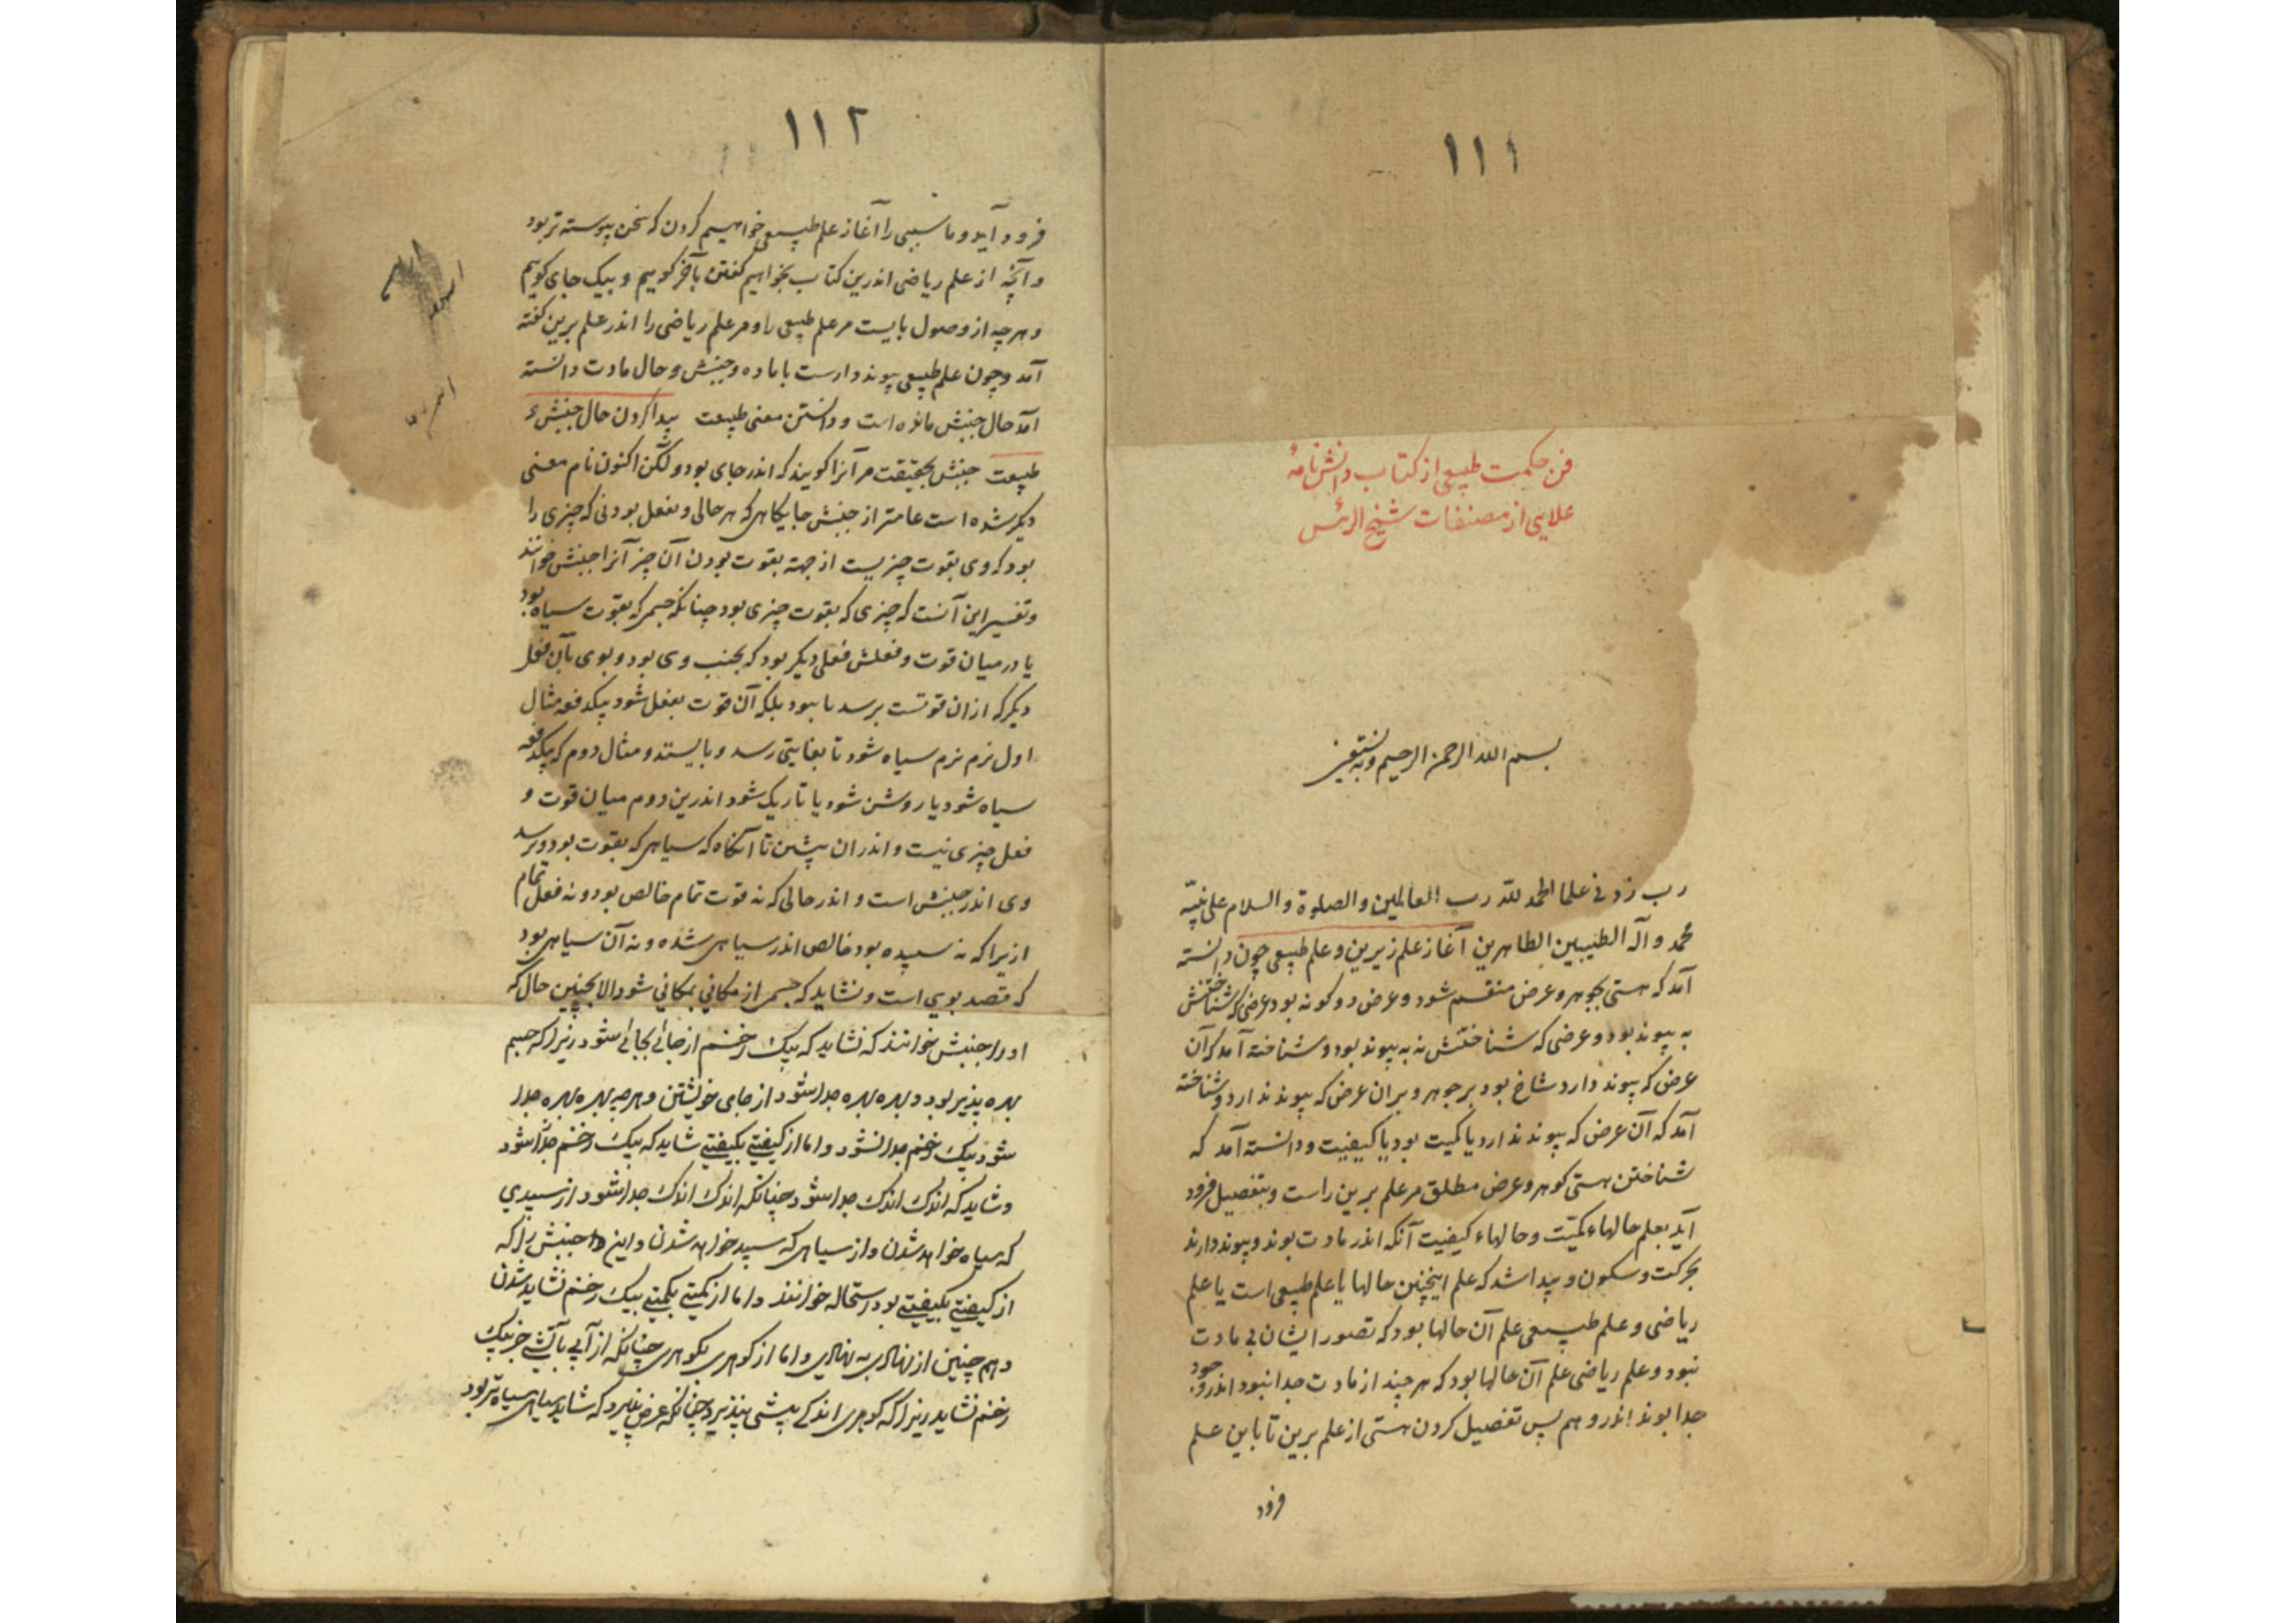 ۱۱۱
فن حکمت طبیعی از کتاب دانش نامهٔ
علایی از مصنفات شیخ الرئیس
بسم الله الرحمن الرحیم وبه نستعین
رب زدنی علما الحمد لله رب العالمین والصلوة والسلام علی نبیه
محمد وآله الطیبین الطاهرین آغاز علم زیرین وعلم طبیعی چون دانسته
آمد که هستی بجوهر وعرض منقسم شود وعرض دو کونه بود عرضی که شناختنش
به پیوند بود وعرضی که شناختنش نه به پیوند بود وشناخته آمد که آن
عرض که پیوند دارد شاخ بود بر جوهر وبران عرض که پیوند ندارد وشناخته
آمد که آن عرض که پیوند ندارد یا کمیت بود یا کیفیت ودانسته آمد که
شناختن هستی کوهر وعرض مطلق مر علم برین راست وبتفصیل فرود
آید بعلم حالهاء کمیّت وحالهاء کیفیت آنکه اندر مادت بوند وپیوند دارند
بحرکت وسکون وپیدا شد که علم اینچنین حالها یا علم طبیعی است یا علم
ریاضی وعلم طبیعی علم آن حالها بود که تصور ایشان بی مادت
نبود وعلم ریاضی علم آن حالها بود که هر چند از مادت جدا نبود اندر وجود
جدا بوند اندر وهم پس تفصیل کردن هستی از علم برین تا باین علم
فرود
۱۱۲
فرود آید وما سببی را آغاز علم طبیعی خواهیم کردن که سخن پیوسته تر بود
وآنچه از علم ریاضی اندرین کتاب بخواهیم کفتن بآخر کوییم وبیک جای کوییم
وهر چه از وصول بایست مر علم طبیعی را ومر علم ریاضی را اندر علم برین کفته
آمد وچون علم طبیعی پیوند دارست با ماده وجنبش وحال مادت دانسته
آمد حال جنبش مانده است ودانستن معنی طبیعت پیدا کردن حال جنبش و
طبیعت جنبش بحقیقت مر آنرا کویند که اندر جای بود ولکن اکنون نام معنی
دیکر شده است عامتر از جنبش جایکاهی که هر حالی وبفعل بودنی که چیزی را
بود که وی بقوت چیزیست از جهة بقوت بودن آن چیز آنرا جنبش خوانند
وتفسیر این آنست که چیزی که بقوت چیزی بود چنانکه جسمی که بقوت سیاه بود
یا در میان قوت وفعلش فعلی دیکر بود که بجنب وی بود وبوی بآن فعل
دیکر که ازان قوتست برسد یا نبود بلکه آن قوت بفعل شود بیکدفعه مثال
اول نرم نرم سیاه شود تا بغایتی رسد وبایستد ومثال دوم که بیکدفعه
سیاه شود یا روشن شود یا تاریک شود اندرین دوم میان قوت و
فعل چیزی نیست واندران پیشین تا آنکاه که سیاهی که بقوت بود وبرسد
وی اندر جنبش است واندر حالی که نه قوت تمام خالص بود ونه فعل تمام
ازیرا که نه سپیده بود خالص اندر سیاهی شده ونه آن سیاهی بود
که قصد بوی است ونشاید که جسم از مکانی بمکانی شود الا بچنین حال که
اورا جنبش خوانند که نشاید که بیک زخم از جائی بجائی شود زیرا که جسم
بهره پذیر بود وبهره بهره جدا شود از جای خویشتن وهر چه بهره بهره جدا
شود بیک زخم جدا نشود واما از کیفیتی بکیفیتی شاید که بیک زخم جدا شود
وشاید که اندک اندک جدا شود چنانکه اندک اندک جدا شود از سپیدی
که سیاه خواهد شدن واز سیاهی که سپید خواهد شدن واین را جنبش را که
از کیفیتی بکیفیتی بود استحاله خوانند واما از کمیتی بکمیتی بیک زخم نشاید شدن
وهم چنین از نهادی به نهادی واما از کوهری بکوهری چنانکه از آبی بآتشی جز بیک
زخم نشاید زیرا که کوهری اندکی بیشی نپذیرد چنانکه عرض پذیرد که شاید سیاهی سیاه تر بود